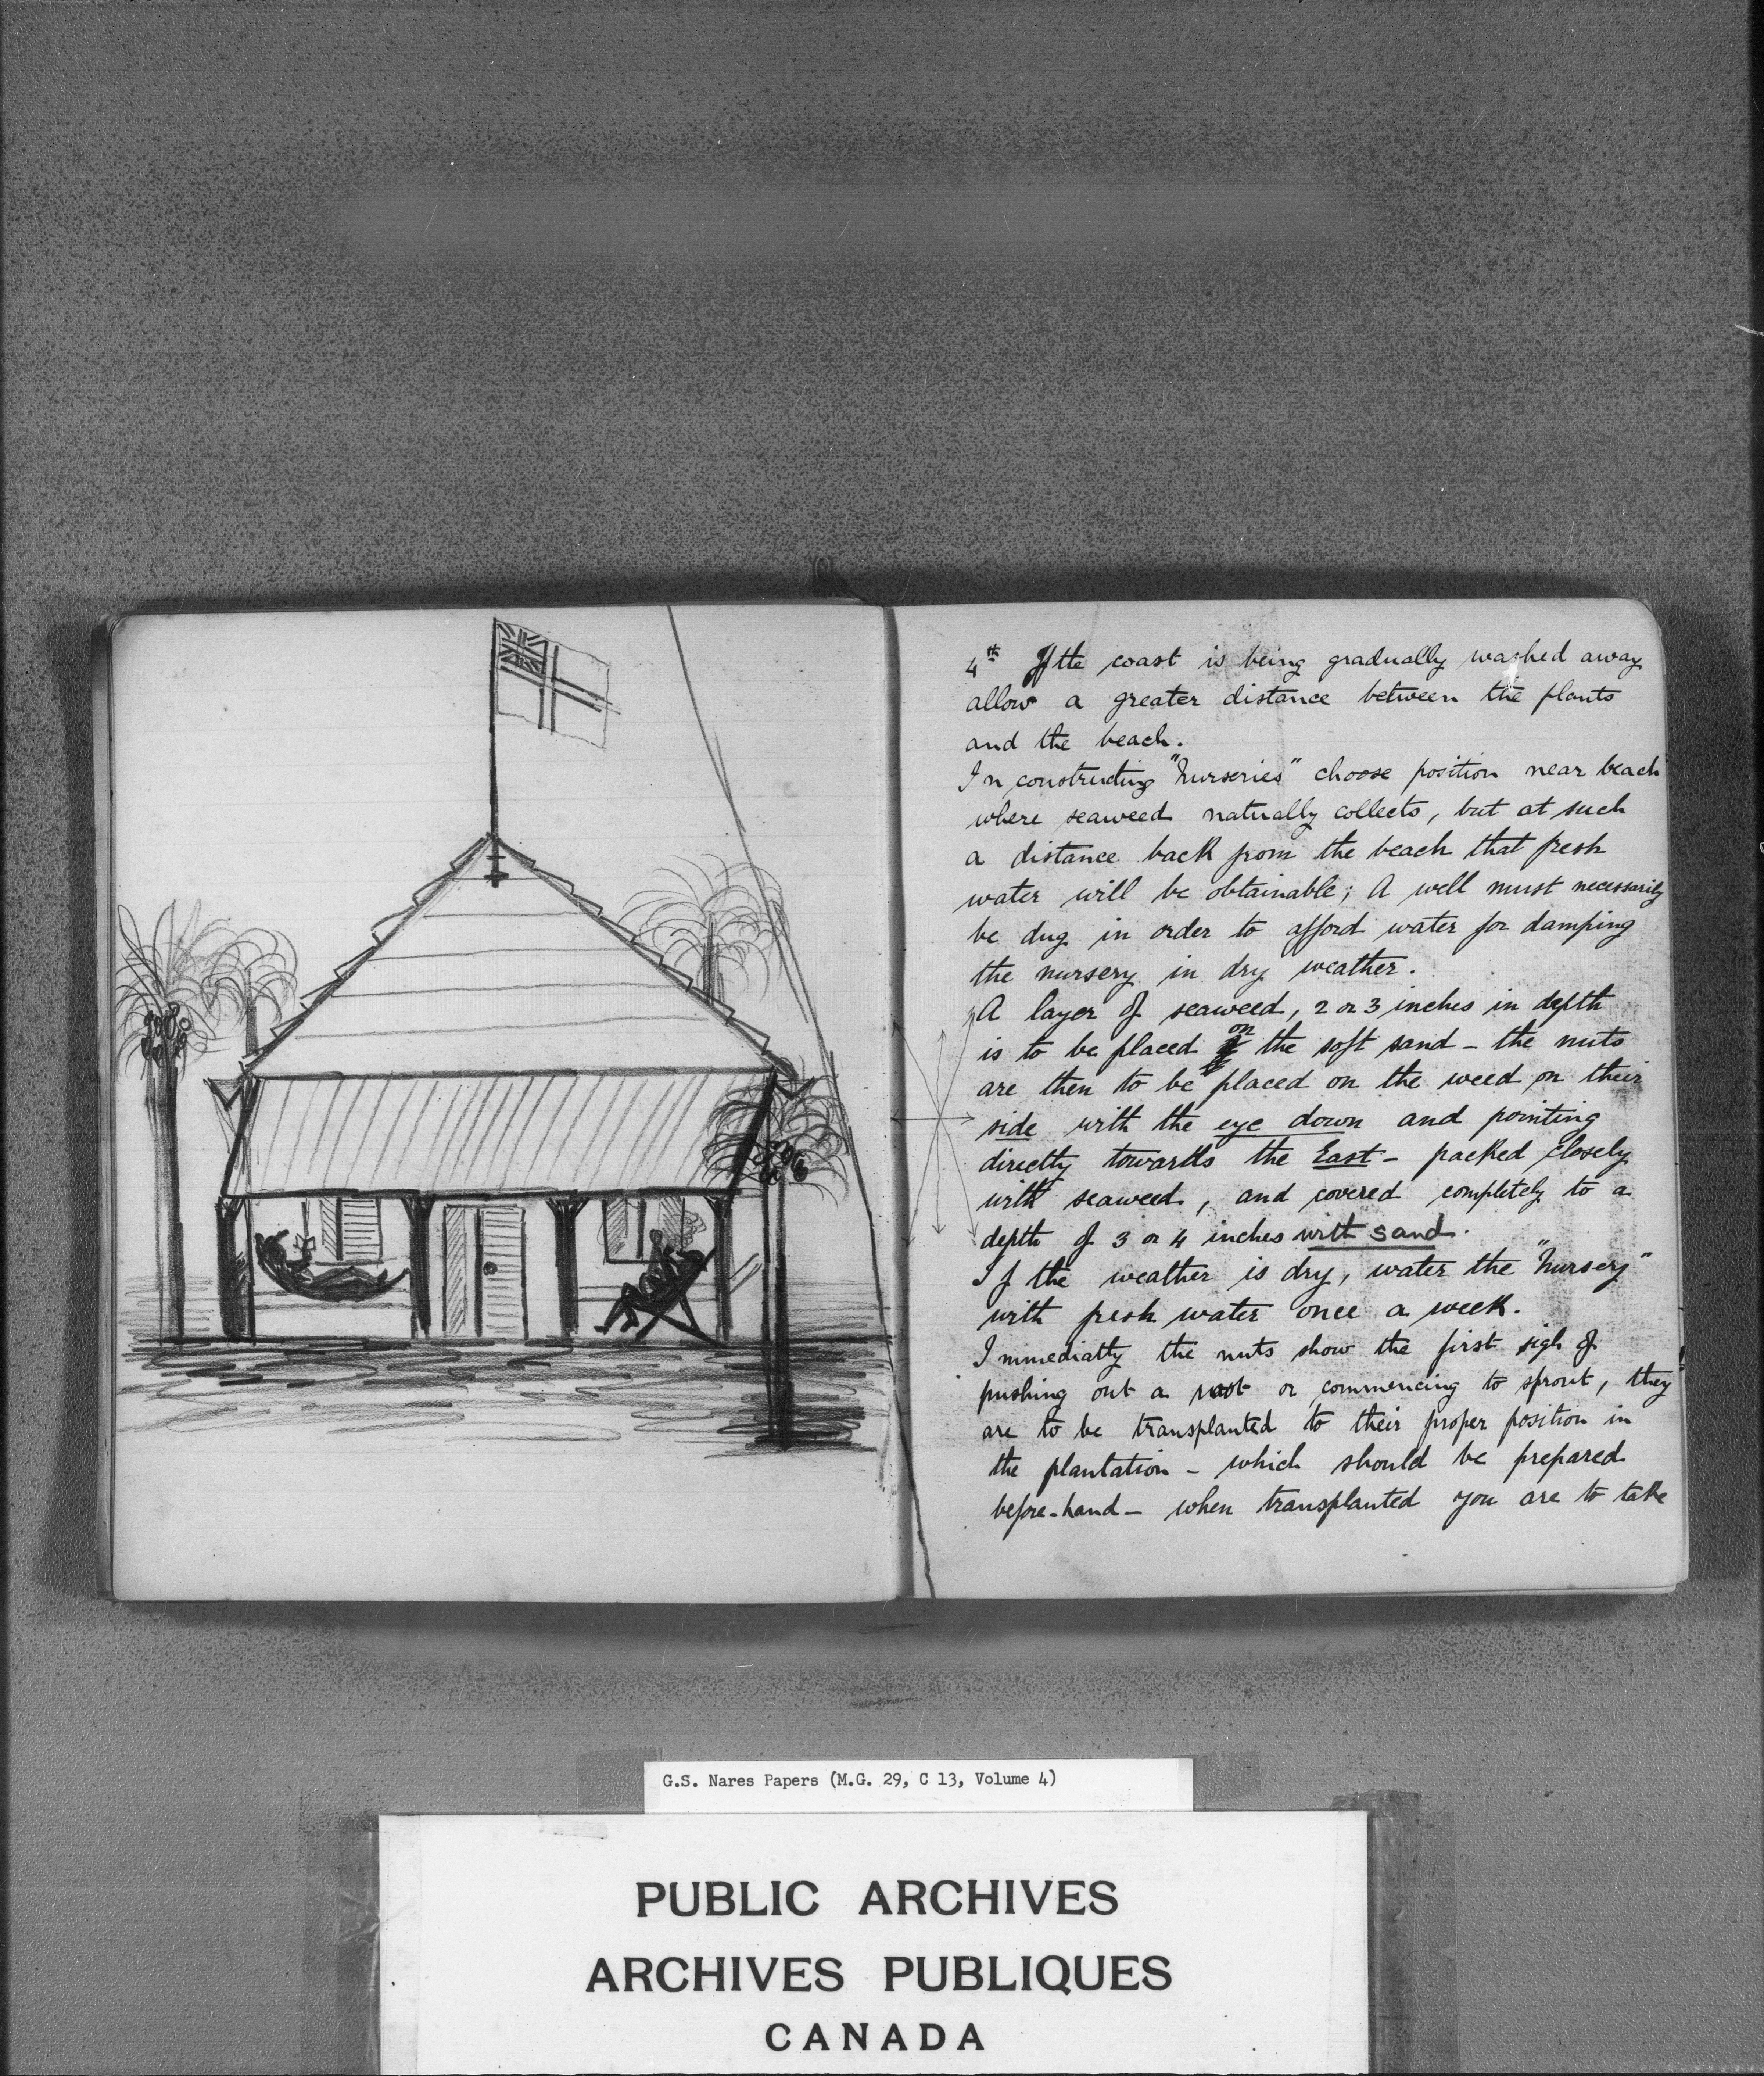 4th If the coast is being gradually washed away
allow a greater distance between the plants
and the beach.
In constructing "Nurseries" choose position near beach
where seaweed naturally collects, but at such
a distance back from the beach that fresh
water will be obtainable; A well must necessarily
be dug in order to afford water for damping
the nursery in dry weather.
A layer of seaweed, 2 or 3 inches in depth
is to be placed on the soft sand - the nuts
are then to be placed on the weed on their
side with the eye down and pointing
directly towards the East - packed closely
with seaweed, and covered completely to a
depth of 3 or 4 inches with sand.
If the weather is dry, water the "Nursery"
with fresh water once a week.
Immediatly the nuts show the first sign of
pushing out a root or commencing to sprout, they
are to be transplanted to their proper position in
the plantation - which should be prepared
before-hand - when transplanted you are to take
G.S. Nares Papers (M.G. 29, C 13, Volume 4)
PUBLIC ARCHIVES
ARCHIVES PUBLIQUES
CANADA